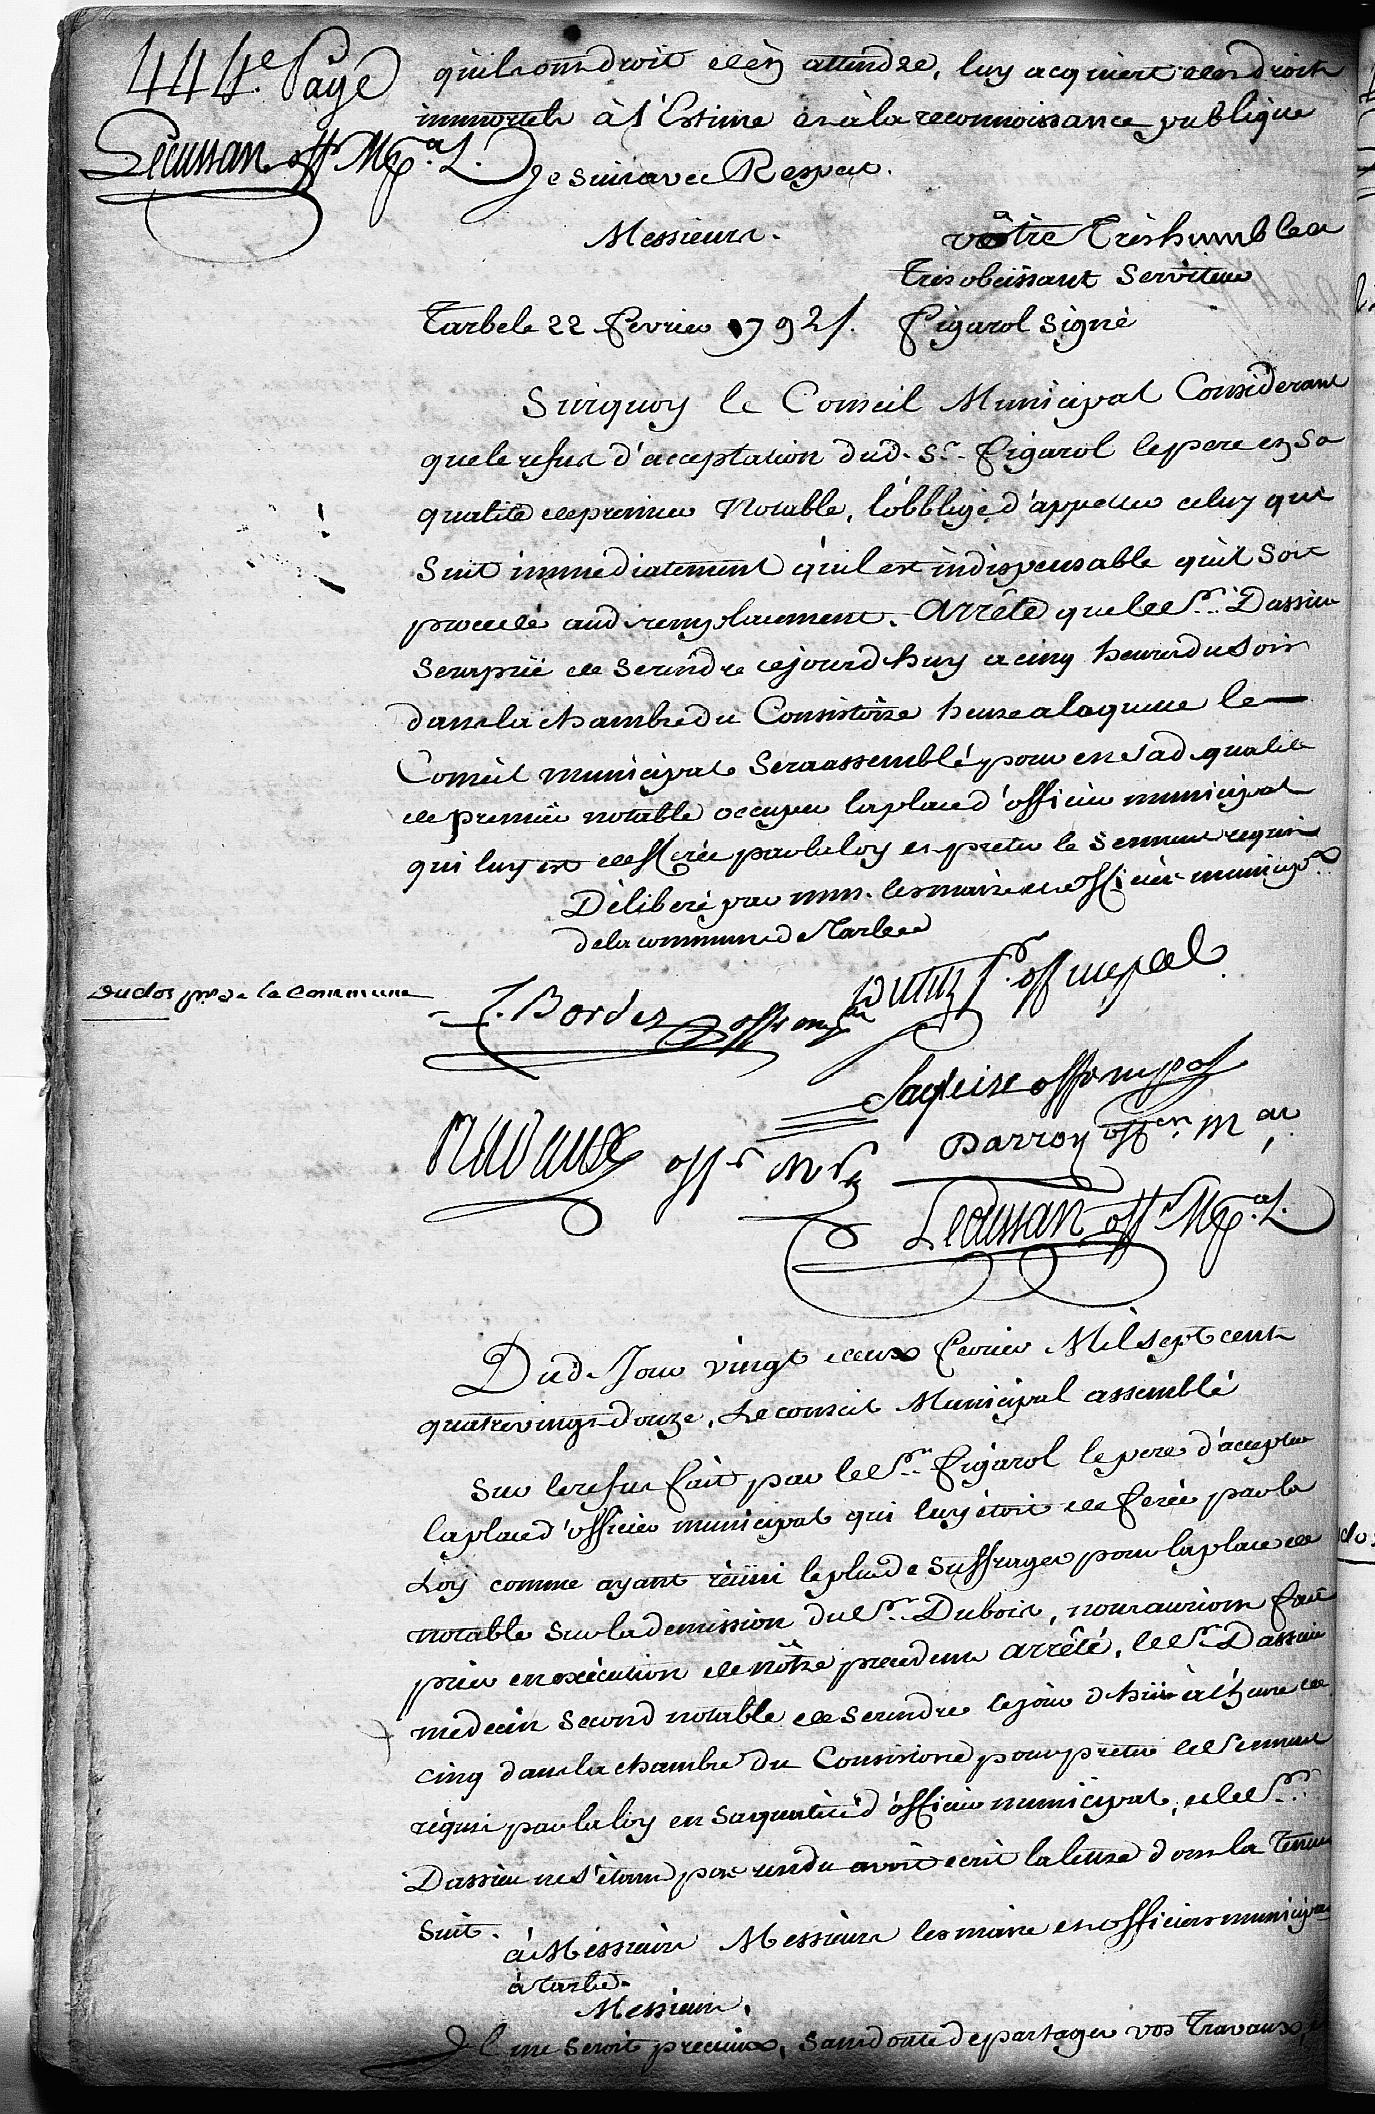 444.e Page
Lecussan offr Mpal.
qu'ils ont droit d'en attendre, luy acquiert des droits
immortels à l'Estime et à la reconnoissance publique
Je suis avec Respect.
Messieurs.
vôtre Très humble &
Très obeissant Serviteur
Tarbe le 22 fevrier 1792 /. Figarol signé
Surquoy le Conseil Municipal Considerant
que le refus d'acceptation dud. Sr. Figarol le pere en sa
qualité de premier Notable, l'obblige d'appeller celuy qui
suit immediatement qu'il est indispensable qu'il soit
procedé aud. remplacement. Arrête que le Sr. Dassieu
sera prié de se rendre cejourd'huy a cinq heures du soir
dans la chambre du Consistoire heure a laquelle le
Conseil municipal sera assemblé, pour en sad. qualité
de premier notable occuper la place d'officier municipal
qui luy est defferée par la loy et preter le serment requis
Déliberé par mm. les maire et officiers municipx
de la commune de Tarbe
Duclos pr. de la Commune
J. Bordes offr mpal
Dutuz Pr. off mpal
Lagleize offr mpal
Navaux offr Mpl
Darroy offer. mal
Lecussan offr Mpal.
Dud. Jour vingt deux Fevrier Mil sept cent
quatrevingt douze, Le conseil Municipal assemblé
Sur le refus fait par le Sr. Figarol le pere d'accepter
la place d'officier municipal qui luy étoit deferée par la
Loy comme ayant réüni le plus de suffrages pour la place de
notable sur la demission du Sr. Dubois, nous aurions fait
prier en exécution de nôtre precedent arrêté, le Sr. Dassieu
medecin second notable de se rendre ce jour d'hui à l'heure de
cinq dans la chambre du Consistoire pour preter le Serment
réquis par la loy en sa qualité d'officier municipal, et le Sr.
Dassieu ne s'étant pas rendu avoit ecrit la lettre dont la Teneur
suit.
à Messieurs Messieurs les maire et officiers municipaux
à Tarbe.
Messieurs.
Il me seroit precieux, sans doute de partager vos Travaux,